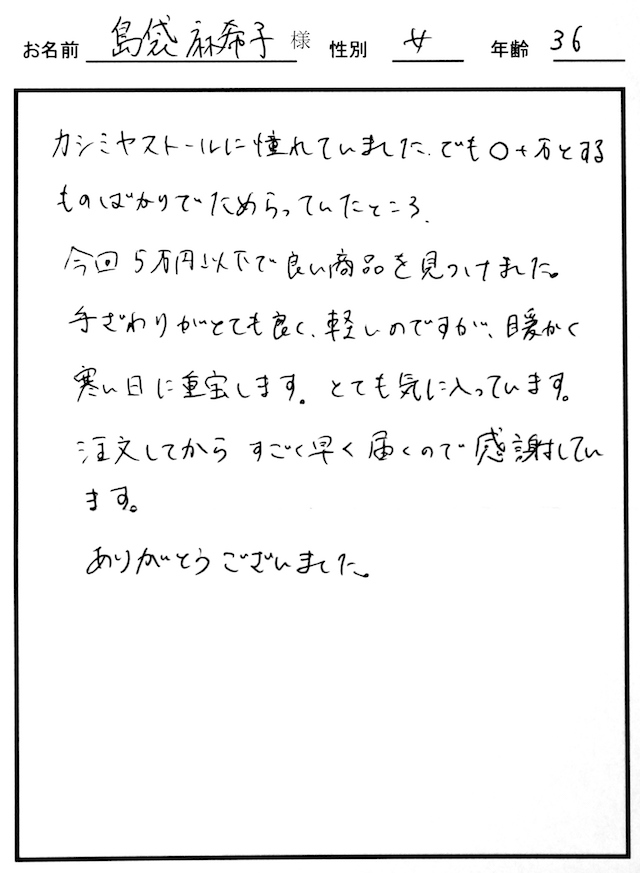 お名前 島袋 麻希子 様 性別 女 年齢 36
カシミヤストールに憧れていました。でも〇十万とする
ものばかりでためらっていたところ、
今回 5万円以下で良い商品を見つけました。
手ざわりがとても良く、軽いのですが、暖かく
寒い日に重宝します。とても気に入っています。
注文してから すごく早く届くので感謝してい
ます。
ありがとうございました。